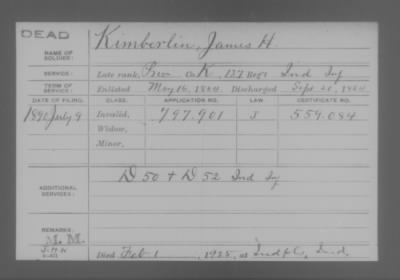 DEAD
NAME OF SOLDIER: Kimberlin, James H.
SERVICE: Late rank, Priv Co. K, 137 Reg't Ind Inf
TERM OF SERVICE: Enlisted May 16, 1864 Discharged Sept. 21, 1864
DATE OF FILING. CLASS. APPLICATION NO. LAW CERTIFICATE NO.
1890 July 9 Invalid, 797.901 J 559.084
Widow,
Minor,
ADDITIONAL SERVICES: D 50 + D 52 Ind Inf
REMARKS:
M. M.
Died Feb 1, 1925, at Indpls, Ind.